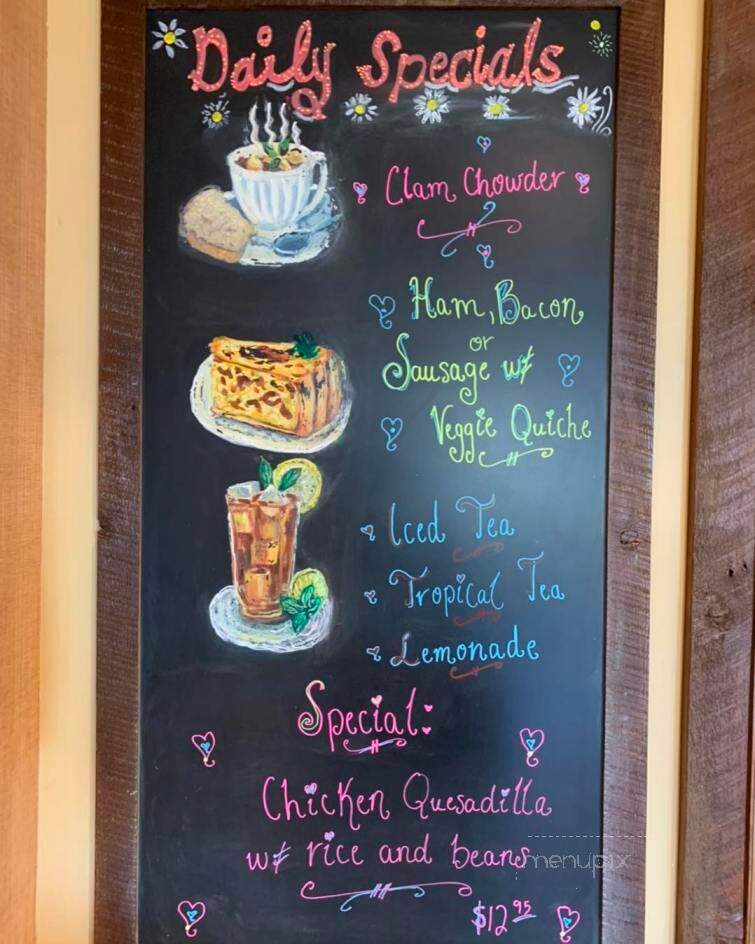 Daily Specials
Clam Chowder
Ham, Bacon
or
Sausage w/
Veggie Quiche
Iced Tea
Tropical Tea
Lemonade
Special:
Chicken Quesadilla
w/ rice and beans
menupix
$12.95